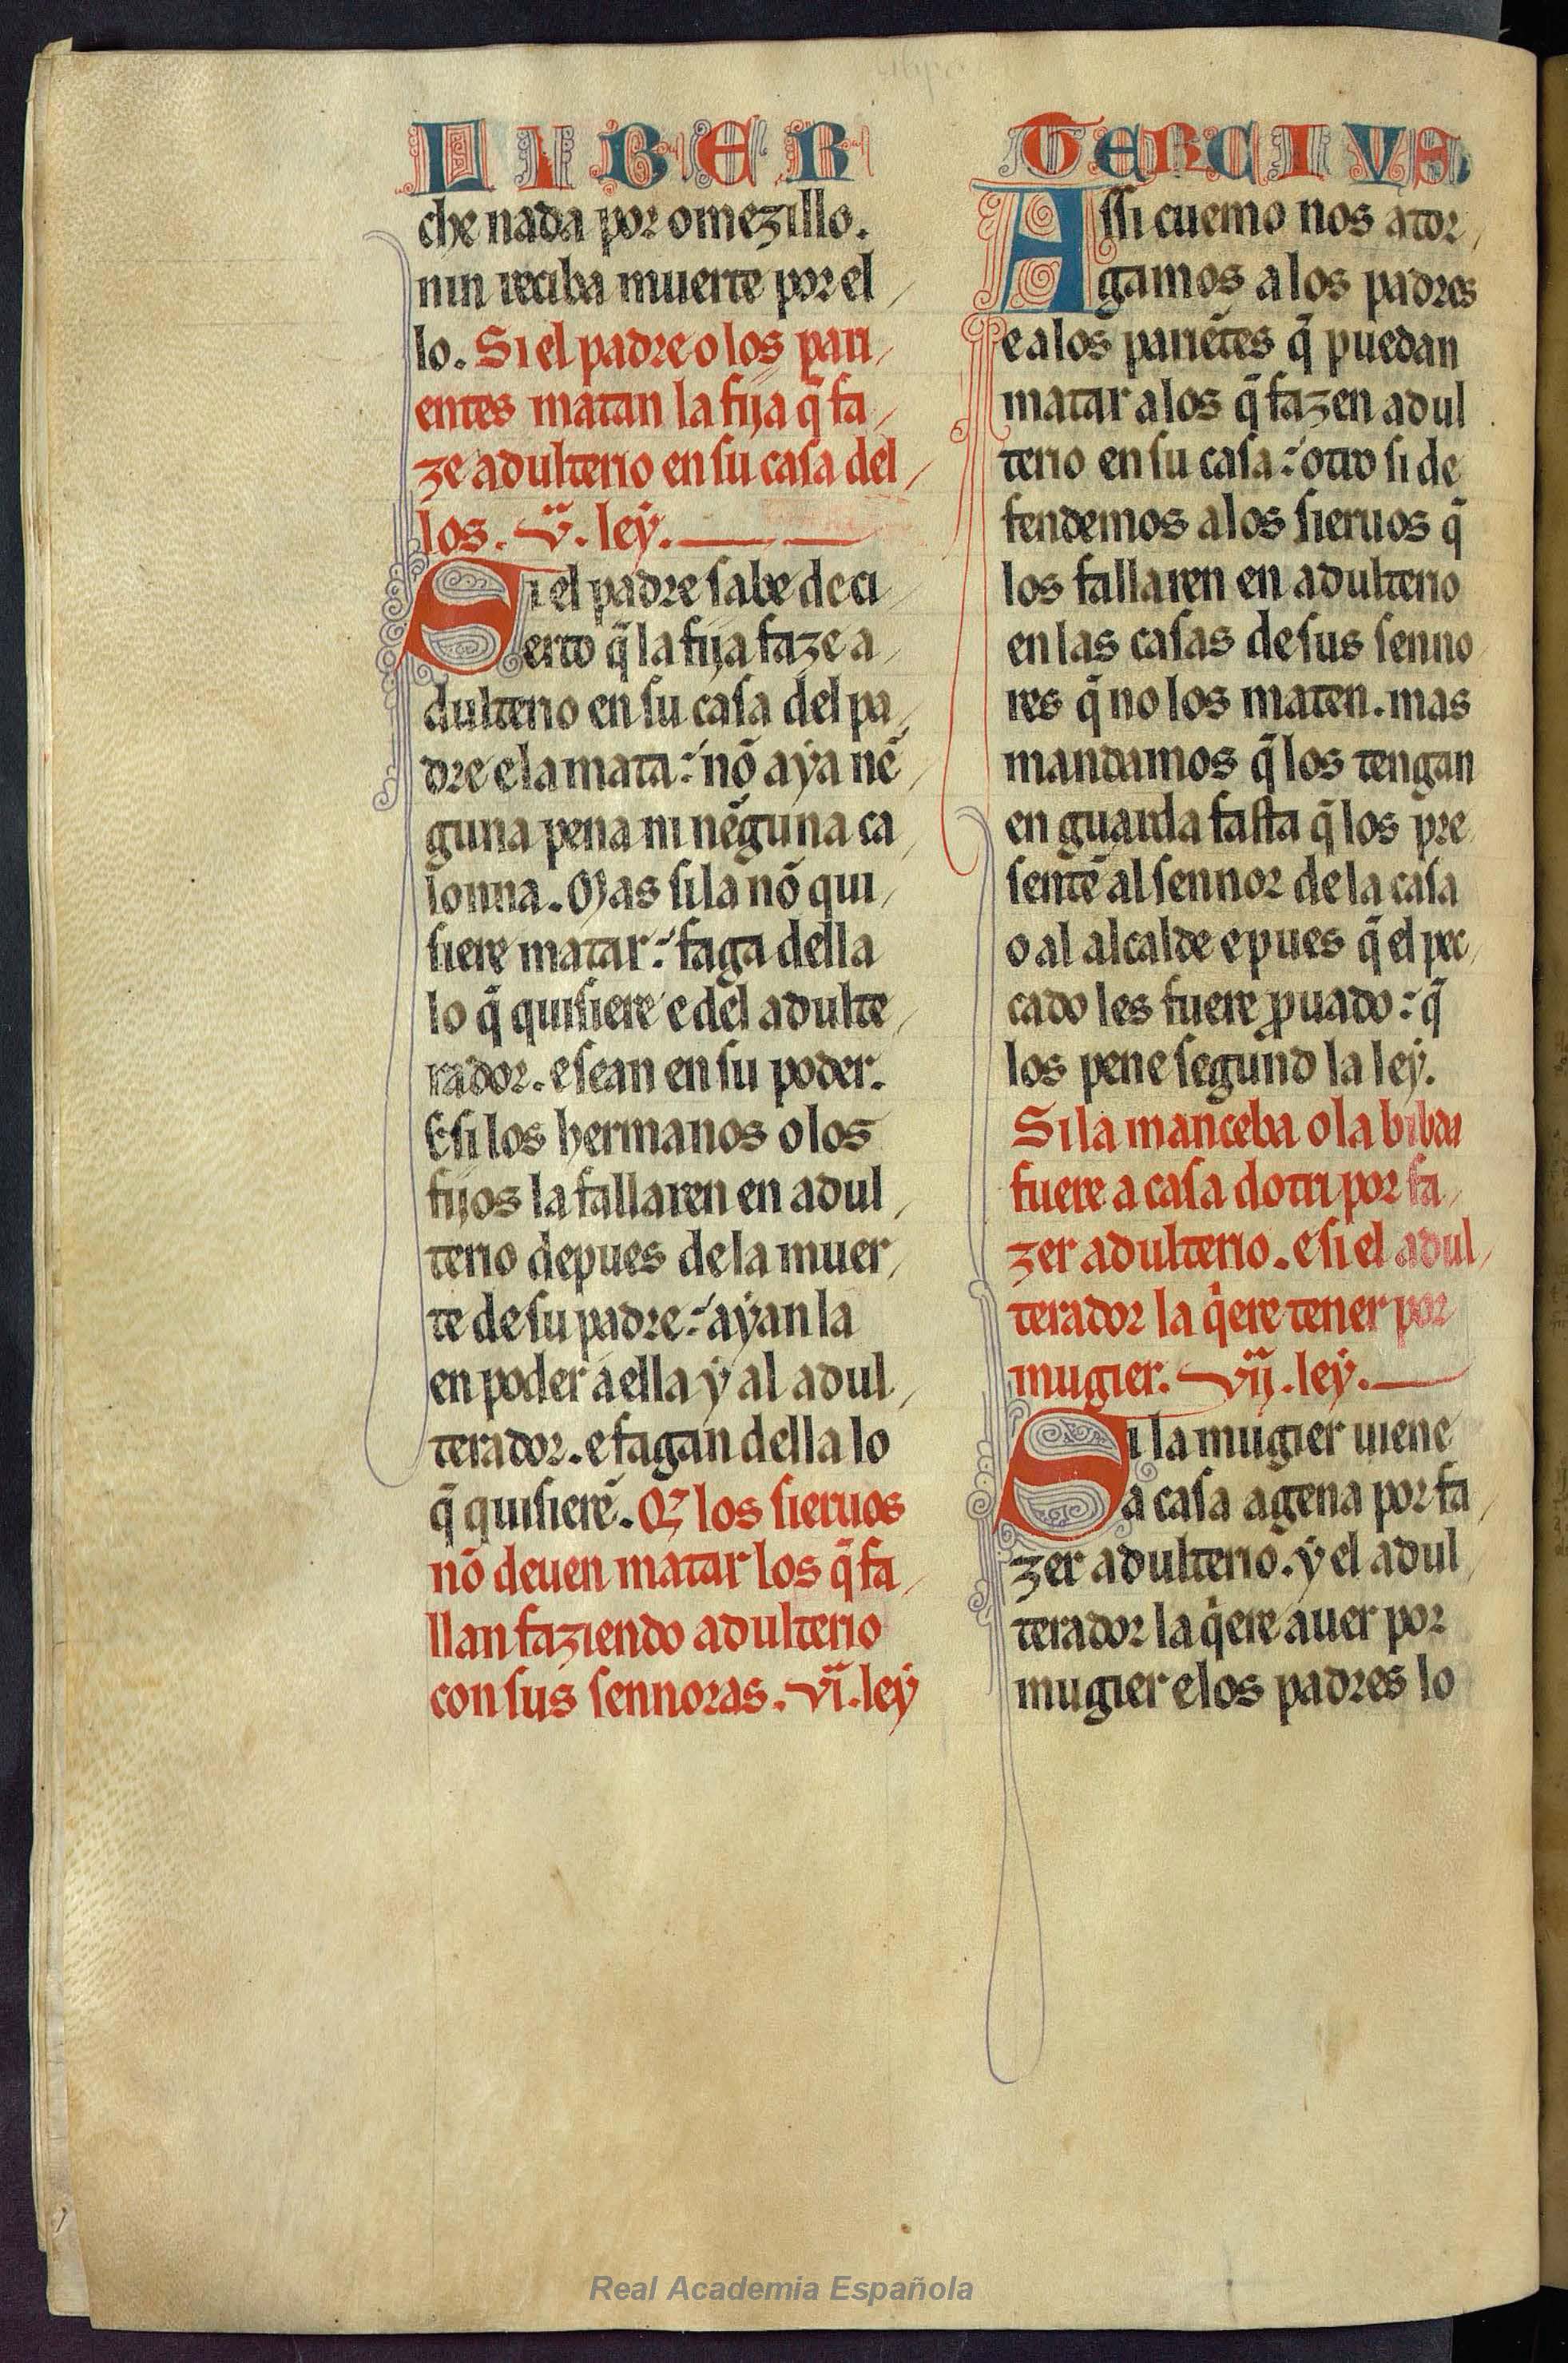 LIBER
che nada por omezillo.
nin reciba muerte por el
lo. Si el padre o los pari
entes matan la fija q̄ fa
ze adulterio en su casa del
los. v̄. ley.
Si el padre sabe de ci
erto q̄ la fija faze a
dulterio en su casa del pa
dre e la mata: nō aya nē
guna pena ni nēguna ca
lonna. Mas si la nō qui
siere matar: faga della
lo q̄ quisiere e del adulte
rador. e sean en su poder.
E si los hermanos o los
fijos la fallaren en adul
terio depues de la muer
te de su padre: ayan la
en poder a ella y al adul
terador. e fagan della lo
q̄ quisierē. Q̄ los sieruos
nō deuen matar los q̄ fa
llan faziendo adulterio
con sus sennoras. vi. ley
TERCIVS
Assi cuemo nos ator
gamos a los padres
e a los pariētes q̄ puedan
matar a los q̄ fazen adul
terio en su casa: otro si de
fendemos a los sieruos q̄
los fallaren en adulterio
en las casas de sus senno
res q̄ no los maten. mas
mandamos q̄ los tengan
en guarda fasta q̄ los pre
sentē al sennor de la casa
o al alcalde e pues q̄ el pec
cado les fuere ꝓuado: q̄
los pene segund la ley.
Si la manceba o la bibda
fuere a casa dotri por fa
zer adulterio. e si el adul
terador la q̄ere tener por
mugier. vij. ley.
Si la mugier uiene
a casa agena por fa
zer adulterio. y el adul
terador la q̄ere auer por
mugier e los padres lo
Real Academia Española